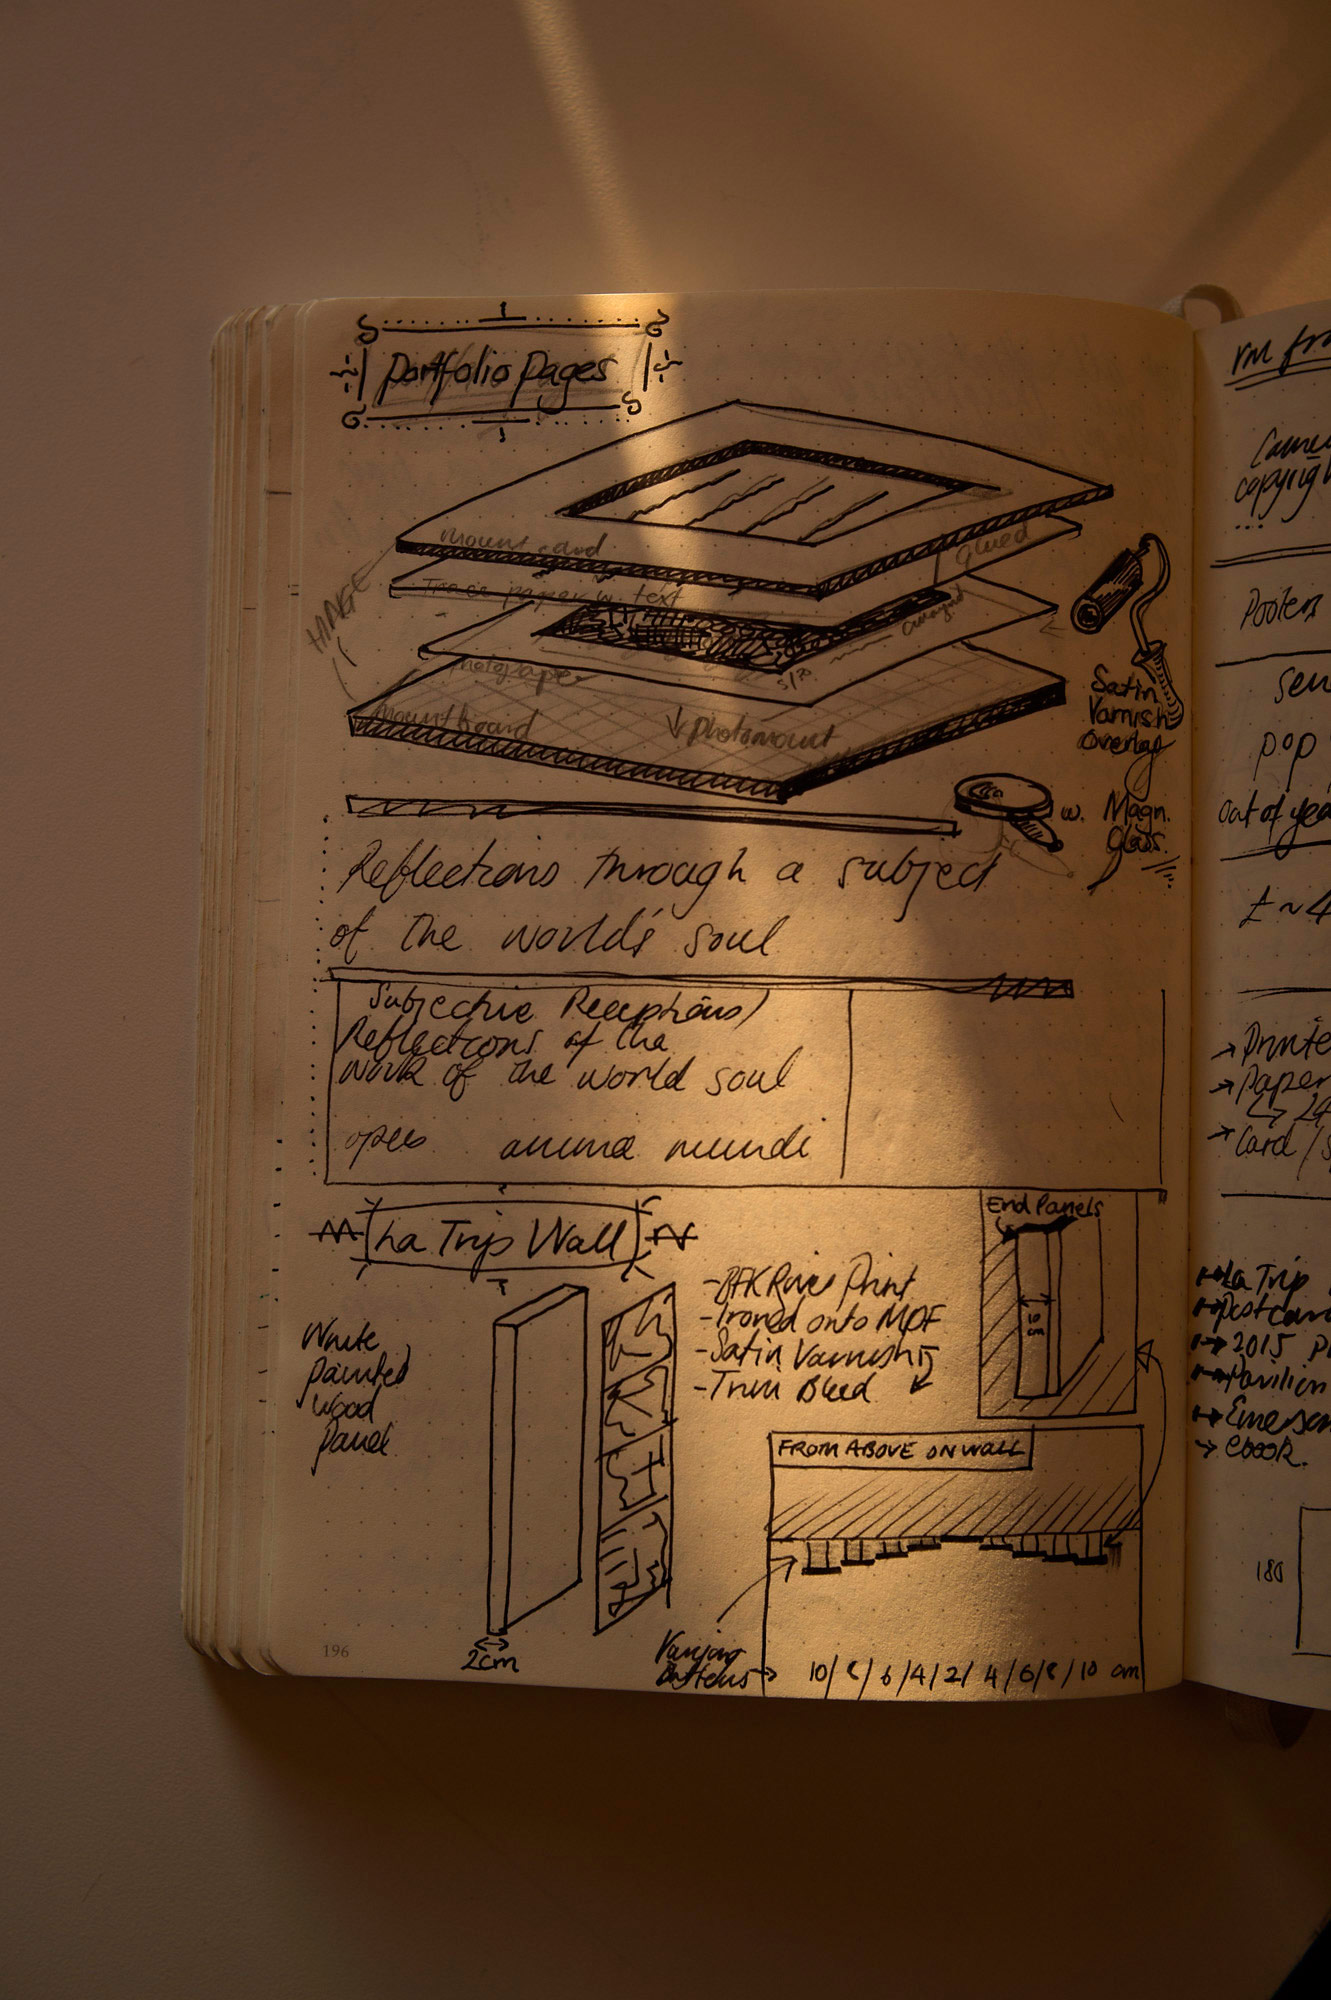 Portfolio Pages
mount card
glued
Trace paper w. text
HINGE
photopaper
mountboard
photomount
Satin
Varnish
Overlay
w. Magn.
Glass.
Reflections through a subject
of the world's soul
Subjective Receptions/
Reflections of the
work of the world soul
opus anima mundi
La Trip Wall
White
painted
wood
panel
2cm
-BFK Rives Print
-Ironed onto MDF
-Satin Varnish
-Trim Bleed
End Panels
10
cm
FROM ABOVE ON WALL
Varying
Battens
10/8/6/4/2/4/6/8/10 cm
196
copyright
Posters
pop
out of
£ ~4
Paper
Card /
La Trip
2015
Pavilion
ebook.
180